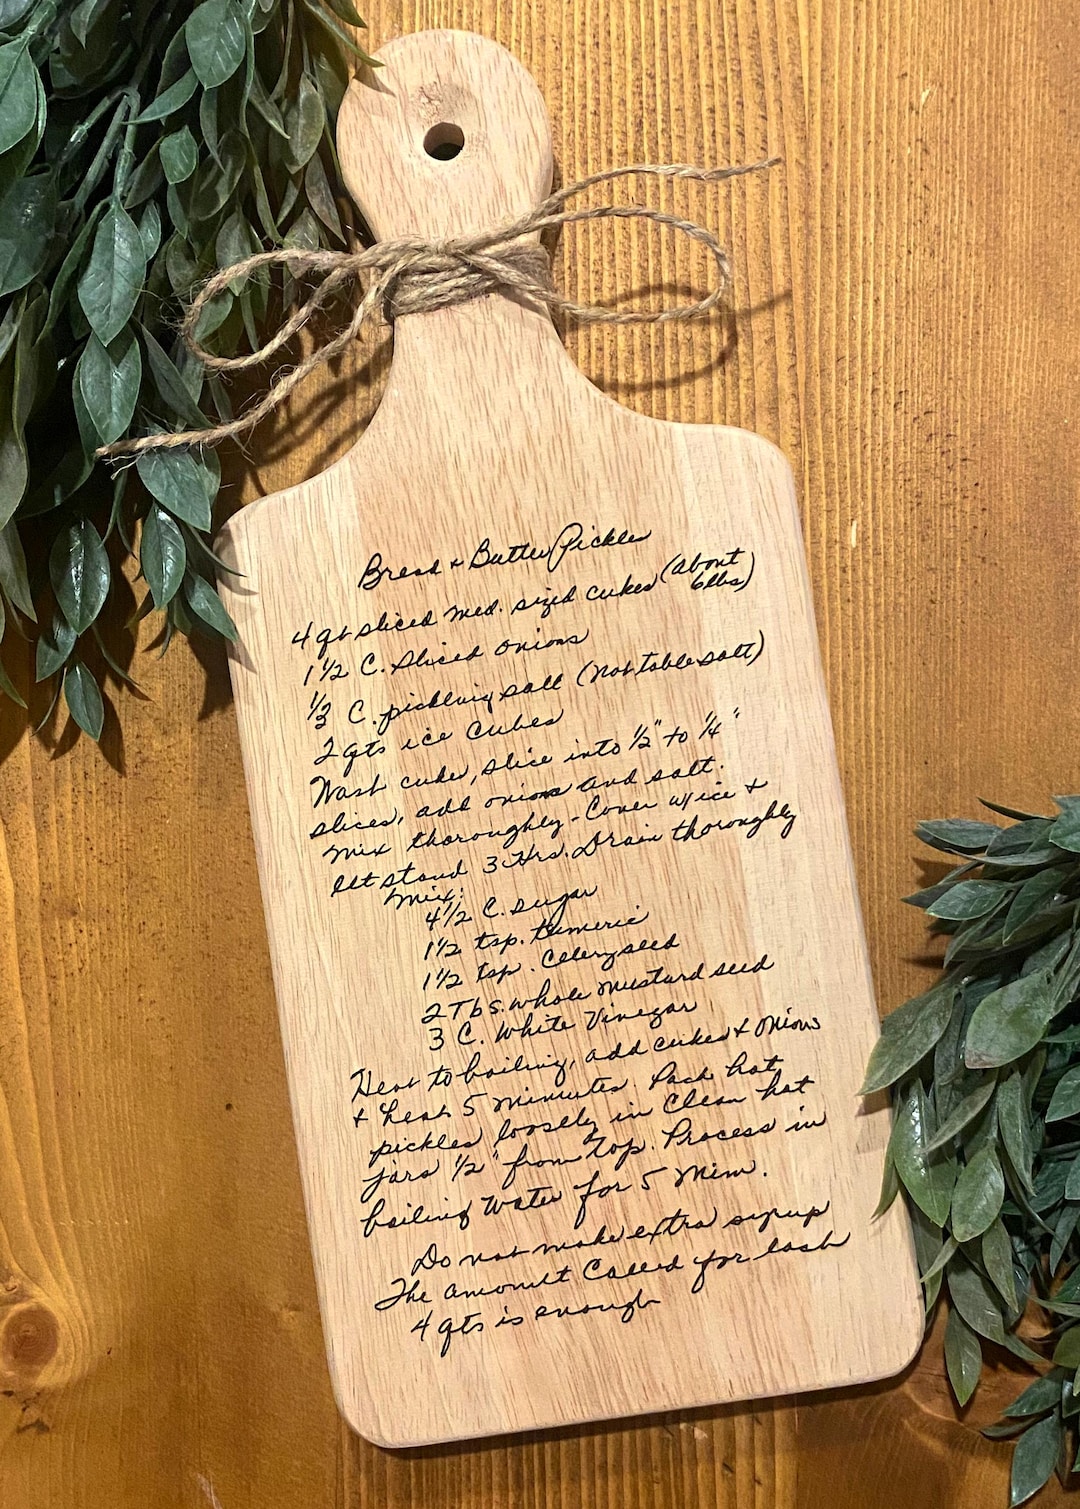 Bread + Butter Pickles
4 qt sliced med. sized cukes (about 6lbs)
1 1/2 C. sliced onions
1/3 C. pickling salt (not table salt)
2 qts ice cubes
Wash cukes, slice into 1/2" to 1/4"
slices, add onions and salt.
Mix thoroughly - Cover w/ice +
let stand 3 Hrs. Drain thoroughly
Mix:
4 1/2 C. sugar
1 1/2 tsp. tumeric
1 1/2 tsp. Celery seed
2 Tbs. whole mustard seed
3 C. White Vinegar
Heat to boiling, add cukes + onions
+ heat 5 minutes. Pack hot
pickles loosely in clean hot
jars 1/2" from top. Process in
boiling water for 5 Min.
Do not make extra syrup
The amount called for each
4 qts is enough